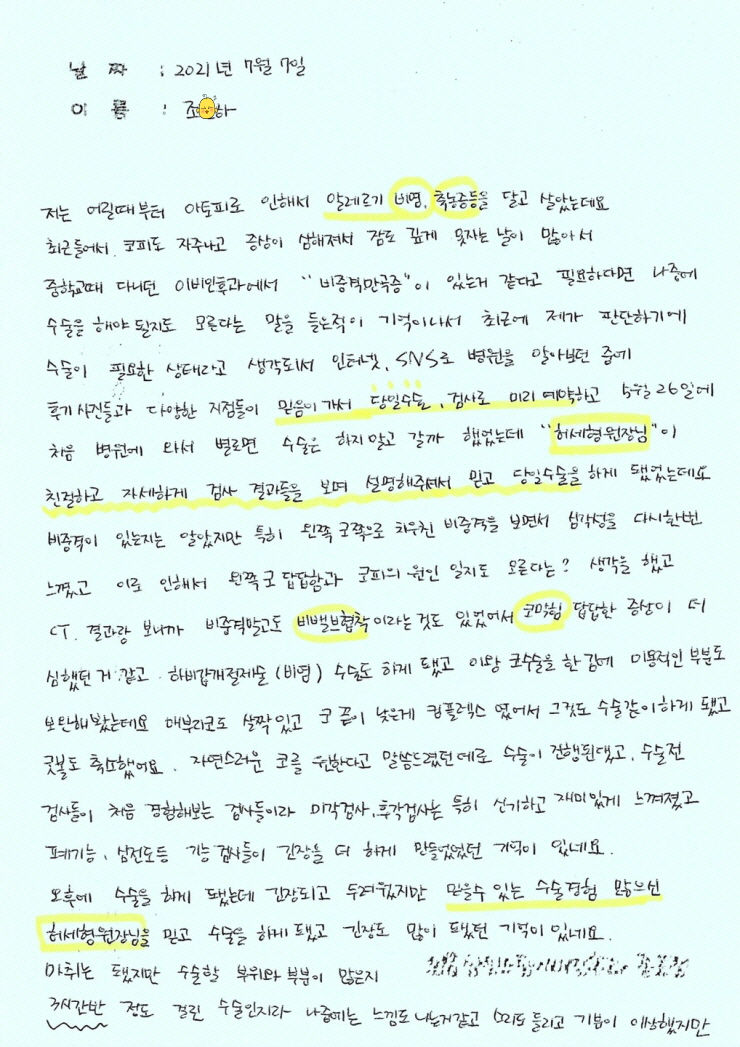 날 짜 : 2021년 7월 7일
이 름 : 조 하
저는 어릴때부터 아토피로 인해서 알레르기 비염, 축농증등을 달고 살았는데요
최근들어서 코피도 자주나고 증상이 심해져서 잠도 깊게 못자는 날이 많아서
중학교때 다니던 이비인후과에서 "비중격만곡증"이 있는거 같다고 필요하다면 나중에
수술을 해야 될지도 모른다는 말을 들은적이 기억이나서 최근에 제가 판단하기에
수술이 필요한 상태라고 생각되서 인터넷, SNS로 병원을 알아보던 중에
후기사진들과 다양한 지점들이 믿음이가서 당일수술, 검사로 미리 예약하고 5월 26일에
처음 병원에 와서 별로면 수술은 하지않고 갈까 했었는데 "허세형원장님"이
친절하고 자세하게 검사 결과들을 보며 설명해주셔서 믿고 당일수술을 하게 됐었는데요
비중격이 있는지는 알았지만 특히 왼쪽 코쪽으로 치우친 비중격을 보면서 심각성을 다시한번
느꼈고 이로 인해서 왼쪽코 답답함과 코피의 원인 일지도 모른다는? 생각을 했고
CT. 결과랑 보니까 비중격말고도 비밸브협착이라는것도 있었어서 코막힘 답답한 증상이 더
심했던 거 같고 하비갑개절제술(비염) 수술도 하게 됐고 이왕 코수술을 한김에 미용적인 부분도
보완해봤는데요 매부리코도 살짝있고 코 끝이 낮은게 컴플렉스 였어서 그것도 수술같이하게 됐고
콧볼도 축소했어요. 자연스러운 코를 원한다고 말씀드렸던데로 수술이 진행된댔고, 수술전
검사들이 처음 경험해보는 검사들이라 미각검사, 후각검사는 특히 신기하고 재미있게 느껴졌고
폐기능, 심전도등 기능검사들이 긴장을 더 하게 만들었었던 기억이 있네요.
오후에 수술을 하게 됐는데 긴장되고 두려웠지만 믿을수 있는 수술경험 많으신
허세형원장님을 믿고 수술을 하게 됐고 긴장도 많이 됐던 기억이 있네요.
마취는 됐지만 수술할 부위와 부분이 많은지
3시간반 정도 걸린 수술인지라 나중에는 느낌도 나는거같고 소리도 들리고 기분이 이상했지만